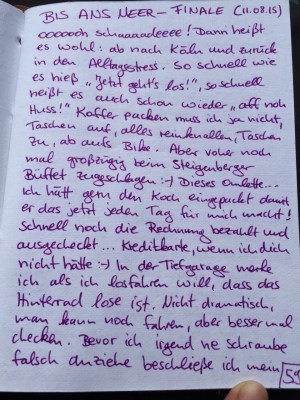 BIS ANS MEER – FINALE (11.08.15)
oooooooh schaaaaadeeee! Dann heißt
es wohl: ab nach Köln und zurück
in den Alltagsstress. So schnell wie
es hieß „Jetzt geht's los!", so schnell
heißt es auch schon wieder „aff noh
Huss!" Koffer packen muss ich ja nicht,
Taschen auf, alles reinknallen, Taschen
zu, ab aufs Bike. Aber vorher noch
mal großzügig beim Steigenberger
Büffet zugeschlagen :-) Dieses Omlette...
Ich hätt gern den Koch eingepackt damit
er das jetzt jeden Tag für mich macht!
Schnell noch die Rechnung bezahlt und
ausgecheckt... Kreditkarte, wenn ich dich
nicht hätte :-) In der Tiefgarage merke
ich als ich losfahren will, dass das
Hinterrad lose ist. Nicht dramatisch,
man kann noch fahren, aber besser mal
checken. Bevor ich irgend ne Schraube
falsch anziehe beschließe ich mein
59